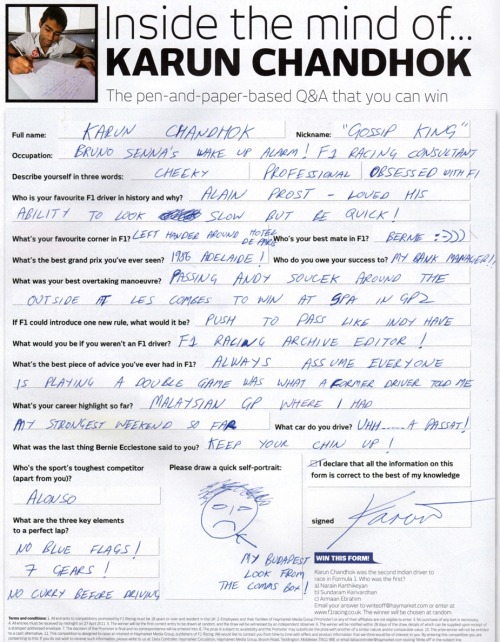 Inside the mind of...
KARUN CHANDHOK
The pen-and-paper-based Q&A that you can win
Full name: KARUN CHANDHOK Nickname: "GOSSIP KING"
Occupation: BRUNO SENNA'S WAKE UP ALARM! F1 RACING CONSULTANT
Describe yourself in three words: CHEEKY PROFESSIONAL OBSESSED WITH F1
Who is your favourite F1 driver in history and why? ALAIN PROST - LOVED HIS
ABILITY TO LOOK SLOW BUT BE QUICK!
What's your favourite corner in F1? LEFT HANDER AROUND HOTEL DE PARIS Who's your best mate in F1? BERNIE :-)))
What's the best grand prix you've ever seen? 1986 ADELAIDE! Who do you owe your success to? MY BANK MANAGER!,
What was your best overtaking manoeuvre? PASSING ANDY SOUCEK AROUND THE
OUTSIDE AT LES COMBES TO WIN AT SPA IN GP2
If F1 could introduce one new rule, what would it be? PUSH TO PASS LIKE INDY HAVE
What would you be if you weren't an F1 driver? F1 RACING ARCHIVE EDITOR!
What's the best piece of advice you've ever had in F1? ALWAYS ASSUME EVERYONE
IS PLAYING A DOUBLE GAME WAS WHAT A FORMER DRIVER TOLD ME
What's your career highlight so far? MALAYSIAN GP WHERE I HAD
MY STRONGEST WEEKEND SO FAR What car do you drive? UHH.....A PASSAT!
What was the last thing Bernie Ecclestone said to you? KEEP YOUR CHIN UP!
Who's the sport's toughest competitor
(apart from you)?
ALONSO
What are the three key elements
to a perfect lap?
NO BLUE FLAGS!
7 GEARS!
NO CURRY BEFORE DRIVING
Please draw a quick self-portrait:
MY BUDAPEST
LOOK FROM
THE COMMS BOX!
I declare that all the information on
this form is correct to the best of my knowledge
signed Karun
WIN THIS FORM!
Karun Chandhok was the second Indian driver to
race in Formula 1. Who was the first?
a) Narain Karthikeyan
b) Sundaram Karivardhan
c) Armaan Ebrahim
Email your answer to winteoff@haymarket.com or enter at
www.f1racing.co.uk. The winner will be chosen at random.
Terms and conditions